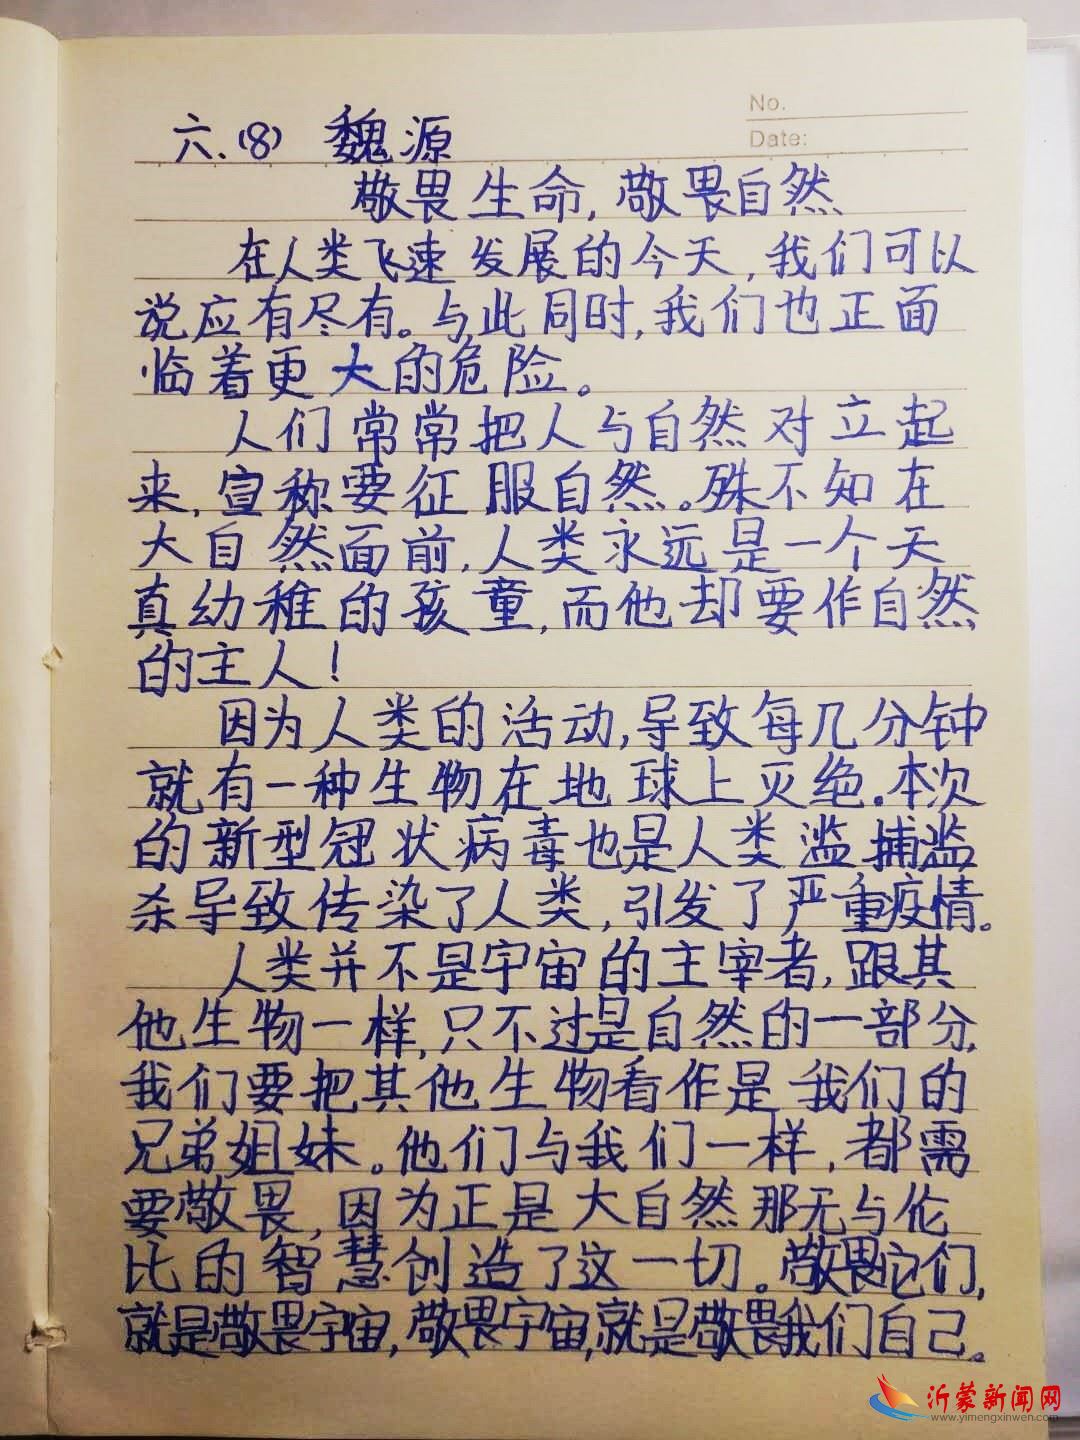 No.
Date:
六.(8) 魏源
敬畏生命,敬畏自然
在人类飞速发展的今天,我们可以
说应有尽有。与此同时,我们也正面
临着更大的危险。
人们常常把人与自然对立起
来,宣称要征服自然。殊不知在
大自然面前,人类永远是一个天
真幼稚的孩童,而他却要作自然
的主人!
因为人类的活动,导致每几分钟
就有一种生物在地球上灭绝。本次
的新型冠状病毒也是人类滥捕滥
杀导致传染了人类,引发了严重疫情。
人类并不是宇宙的主宰者,跟其
他生物一样,只不过是自然的一部分,
我们要把其他生物看作是我们的
兄弟姐妹。他们与我们一样,都需
要敬畏,因为正是大自然那无与伦
比的智慧创造了这一切。敬畏它们,
就是敬畏宇宙,敬畏宇宙,就是敬畏我们自己。
沂蒙新闻网
www.yimengxinwen.com